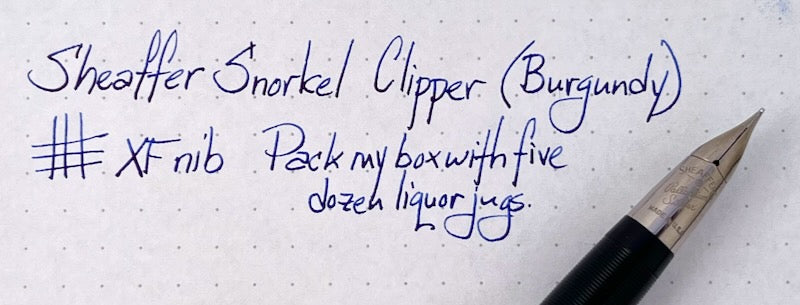 Sheaffer Snorkel Clipper (Burgundy)
XF nib Pack my box with five
dozen liquor jugs.
SHEAFFER'S